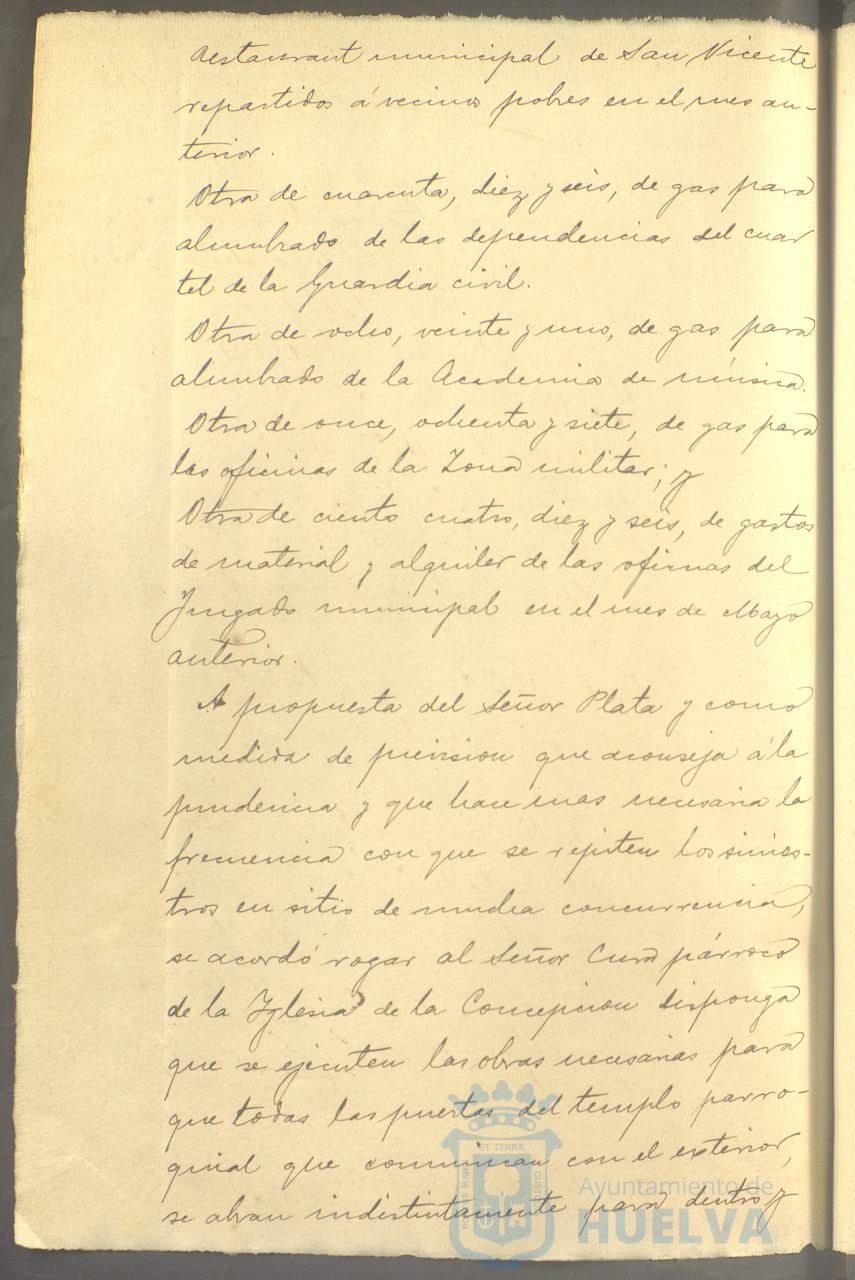 Restaurant municipal de San Vicente
repartidos á vecinos pobres en el mes an-
terior.
Otra de cuarenta, diez y seis, de gas para
alumbrado de las dependencias del cuar
tel de la Guardia civil.
Otra de ocho, veinte y uno, de gas para
alumbrado de la Academia de música.
Otra de once, ochenta y siete, de gas para
las oficinas de la Zona militar; y
Otra de ciento cuatro, diez y seis, de gastos
de material y alquiler de las oficinas del
Juzgado municipal en el mes de Mayo
anterior.
A propuesta del Señor Plata y como
medida de prevision que aconseja á la
prudencia y que hace mas necesaria la
frecuencia con que se repiten los sinies-
tros en sitio de mucha concurrencia,
se acordó rogar al Señor Cura párroco
de la Iglesia de la Concepcion disponga
que se ejecuten las obras necesarias para
que todas las puertas del templo parro-
quial que comunican con el exterior,
se abran indistintamente para dentro y
ET TERRÆ
Ayuntamiento de
HUELVA